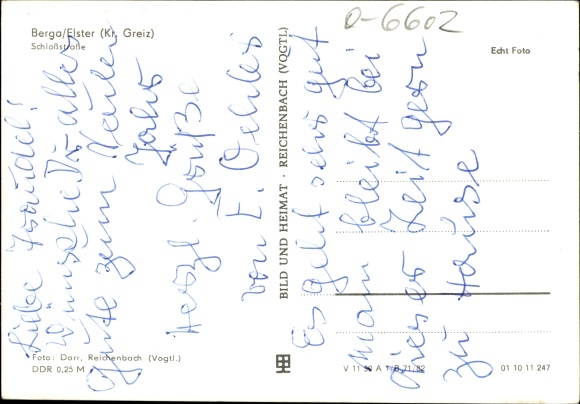 Berga/Elster (Kr. Greiz)
Schloßstraße
O-6602
Echt Foto
Liebe Traudel!
Wünsche Dir alles
Gute zum Neuen
Jahr
Herzl. Grüße
von E. Oehler
Es geht sehr gut
man bleibt bei
dieser Zeit gern
zu Hause
BILD UND HEIMAT · REICHENBACH (VOGTL)
Foto: Darr, Reichenbach (Vogtl.)
DDR 0,25 M
V 11 50 A 1/B 71/82
01 10 11 247